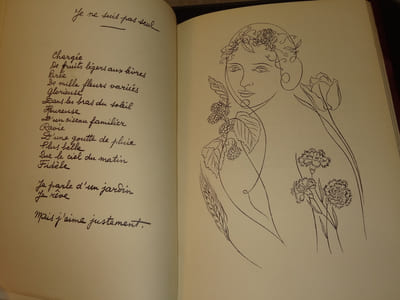 Je ne suis pas seul
Chargée
De fruits légers aux lèvres
Parée
De mille fleurs variées
Glorieuse
Dans les bras du soleil
Heureuse
D'un oiseau familier
Ravie
D'une goutte de pluie
Plus belle
Que le ciel du matin
Fidèle
Je parle d'un jardin
Je rêve
Mais j'aime justement.